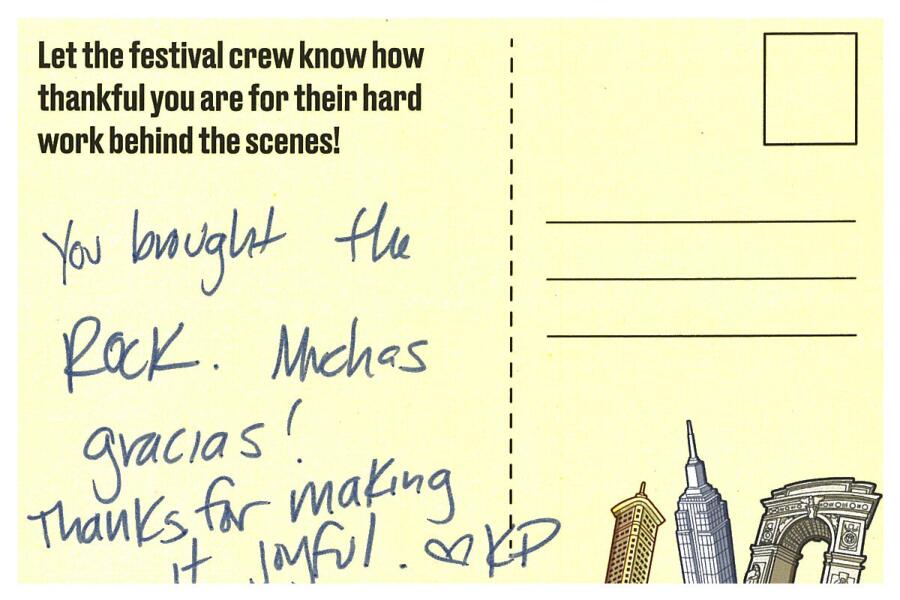 Let the festival crew know how
thankful you are for their hard
work behind the scenes!
You brought the
Rock. Muchas
gracias!
Thanks for making
it joyful. ♡ KP